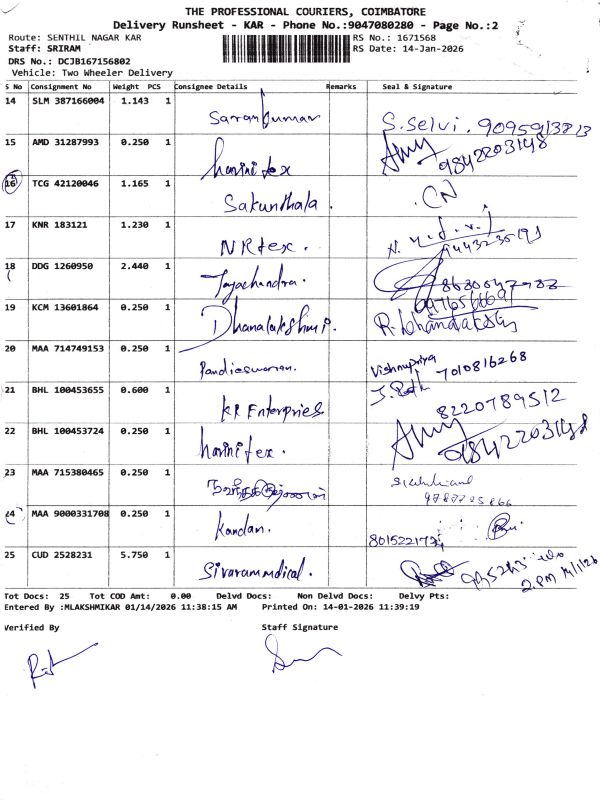 THE PROFESSIONAL COURIERS, COIMBATORE
Delivery Runsheet - KAR - Phone No.:9047080280 - Page No.:2
Route: SENTHIL NAGAR KAR RS No.: 1671568
Staff: SRIRAM RS Date: 14-Jan-2026
DRS No.: DCJB167156802
Vehicle: Two Wheeler Delivery
S No Consignment No Weight PCS Consignee Details Remarks Seal & Signature
14 SLM 387166004 1.143 1 Sarankumar S.Selvi. 9095913813
15 AMD 31287993 0.250 1 harini tex Amy 9842203148
16 TCG 42120046 1.165 1 Sakunthala . CN
17 KNR 183121 1.230 1 NRtex .
18 DDG 1260950 2.440 1 Jayachandra.
19 KCM 13601864 0.250 1 Dhanalakshmi.
20 MAA 714749153 0.250 1 Pandieswaran. Vishnupriya 7010816268
21 BHL 100453655 0.600 1 KR Enterpries 8220789512
22 BHL 100453724 0.250 1 harini tex. Amy 9842203148
23 MAA 715380465 0.250 1
24 MAA 9000331708 0.250 1 Kandan.
25 CUD 2528231 5.750 1 Sivarammdical . 2.pm 14/1/26
Tot Docs: 25 Tot COD Amt: 0.00 Delvd Docs: Non Delvd Docs: Delvy Pts:
Entered By :MLAKSHMIKAR 01/14/2026 11:38:15 AM Printed On: 14-01-2026 11:39:19
Verified By Staff Signature